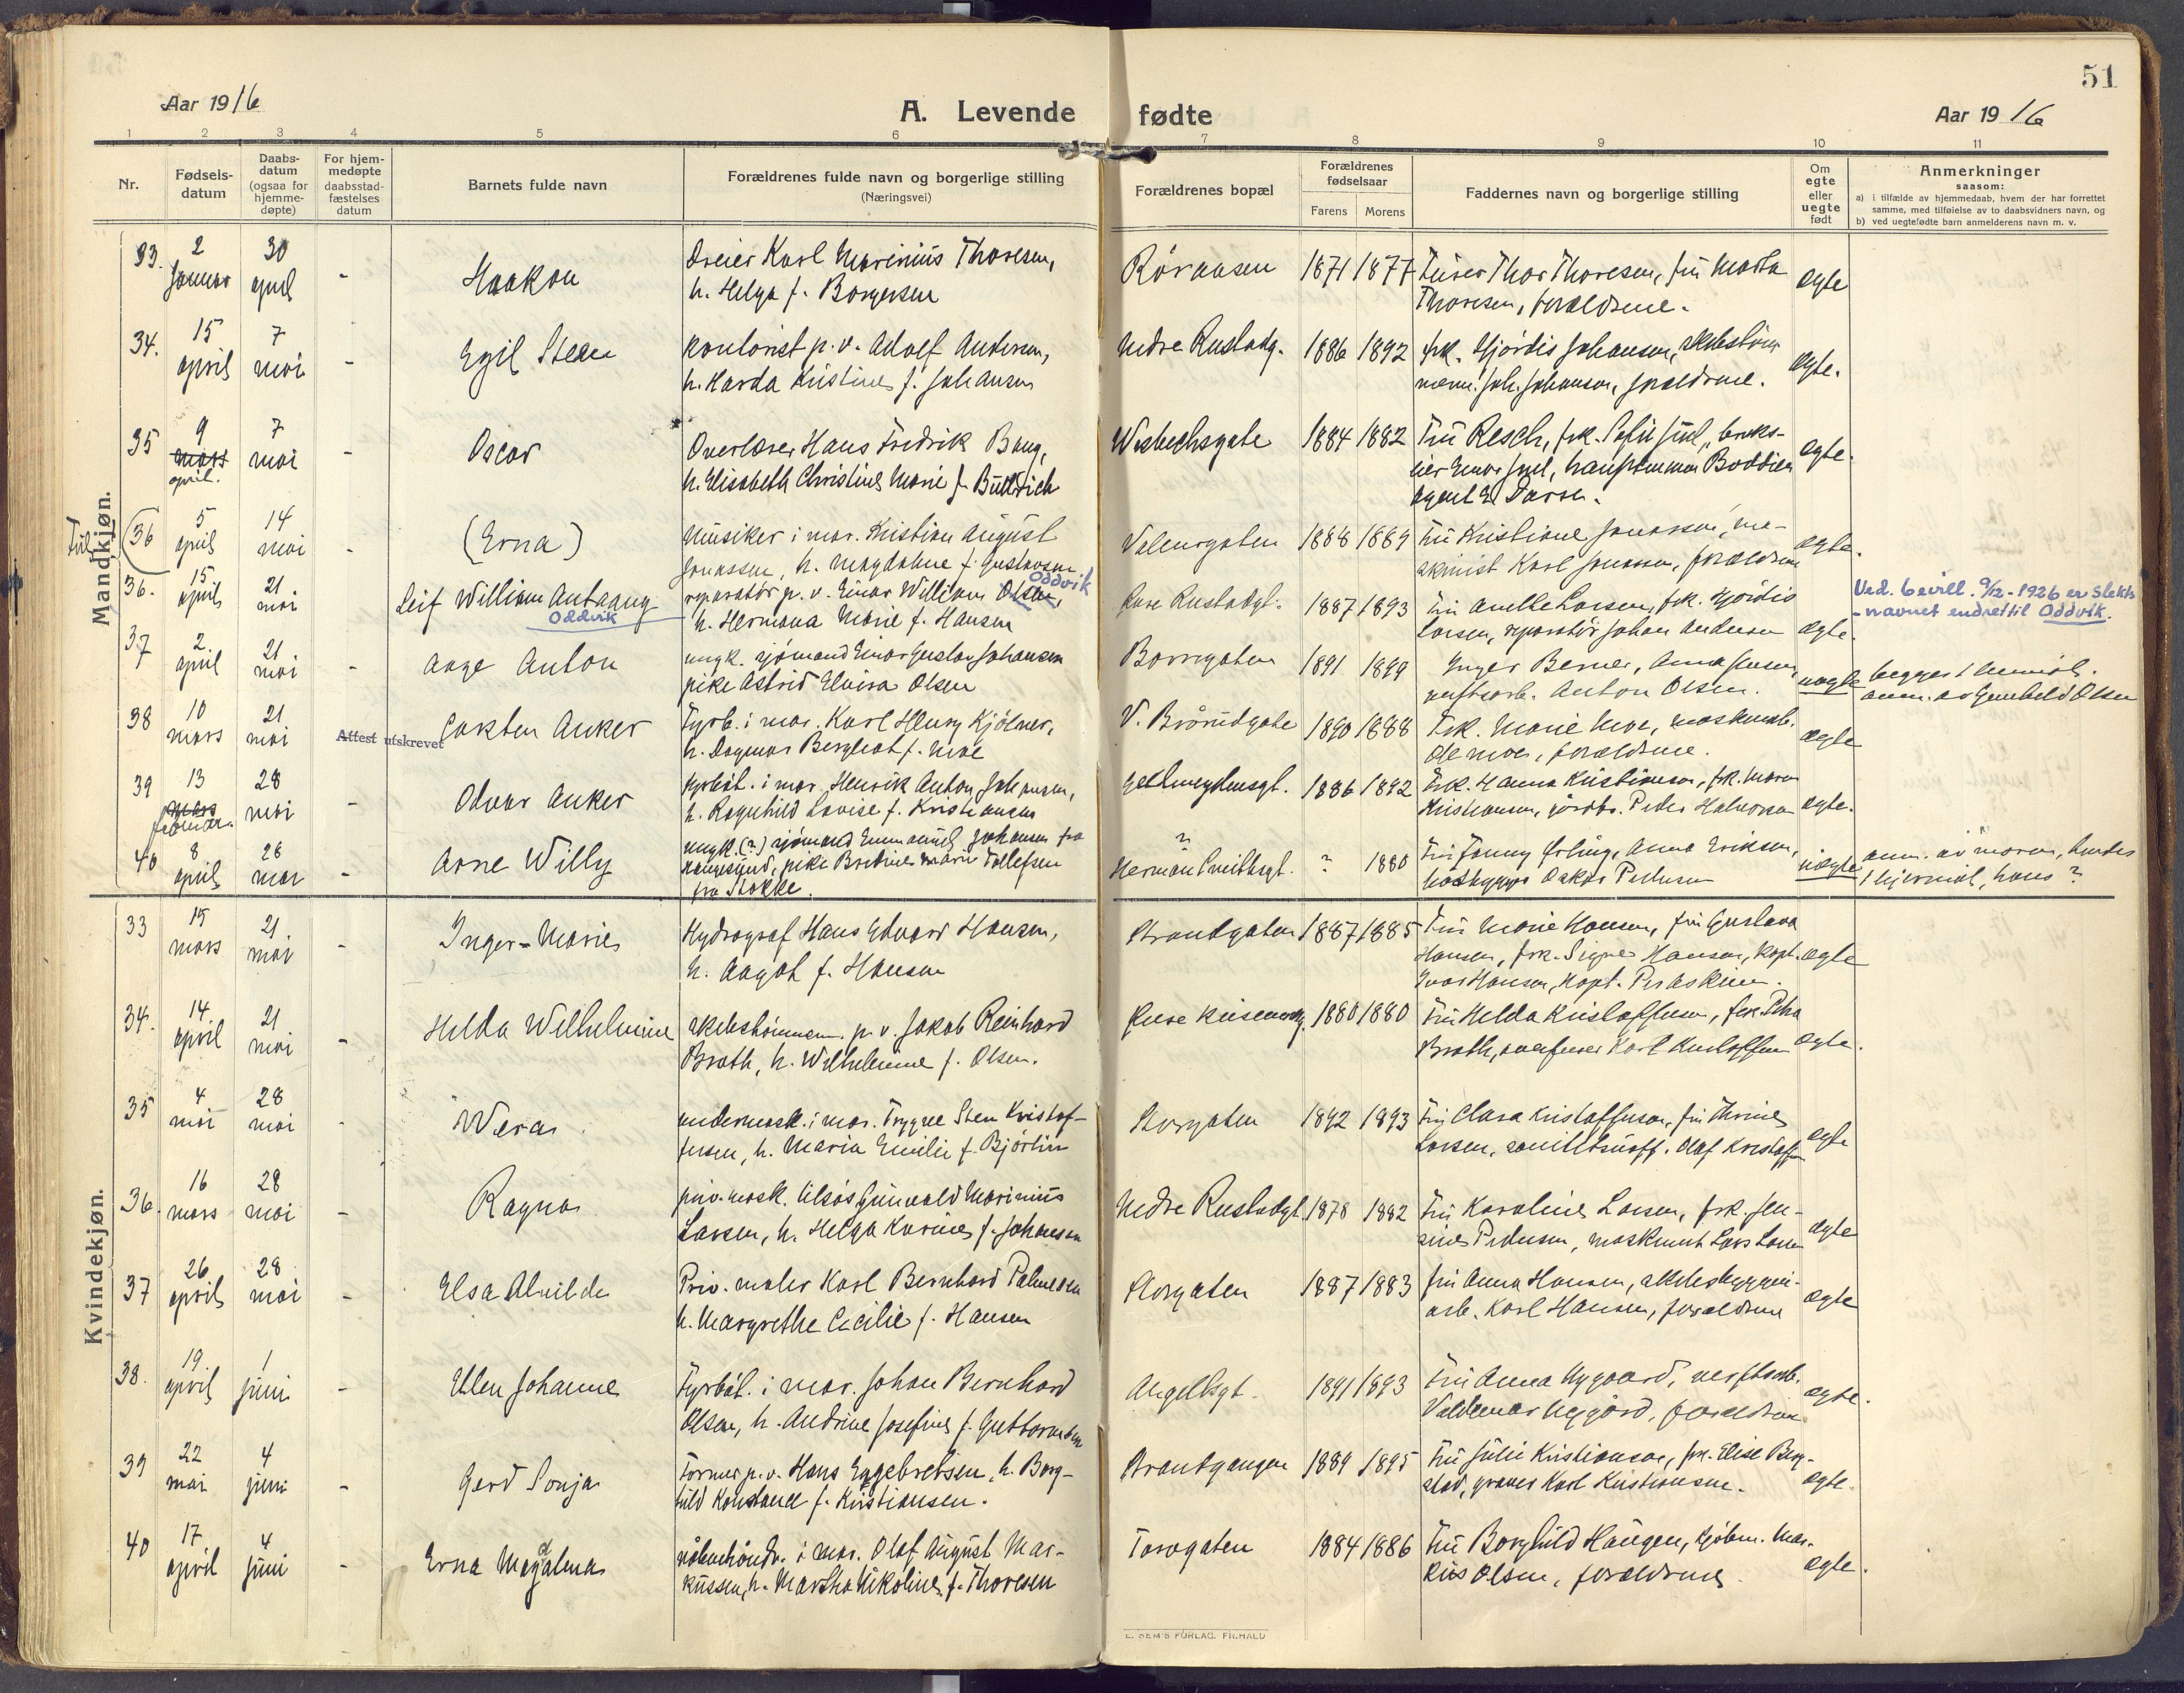 51
Aar 1916
A. Levende fødte
Aar 1916
1 2 3 4 5 6 7 8 9 10 11
Nr.
Fødsels-
datum
Daabs-
datum
(ogsaa for
hjemme-
døpte)
For hjem-
medøpte
daabsstad-
fæstelses
datum
Barnets fulde navn
Forældrenes fulde navn og borgerlige stilling
(Næringsvei)
Forældrenes bopæl
Forældrenes
fødselsaar
Farens
Morens
Faddernes navn og borgerlige stilling
Om
egte
eller
uegte
født
Anmerkninger
saasom:
a) i tilfælde av hjemmedaab, hvem der har forrettet
samme, med tilføielse av to daabsvidners navn, og
b) ved uegtefødte barn anmelderens navn m. v.
Mandkjøn.
33. 2 januar 30 april - Haakon
Dreier Karl Marinius Thoresen,
h. Helga f. Borgersen
Røraasen 1871 1877
Thor Thoresen, fru Marta
Thoresen, forældrene.
egte
34. 15 april 7 mai - Egil Steen
Kontorist p.v. Adolf Andersen,
h. Harda Kristine f. Johansen
Nedre Rustadg. 1886 1892
Frk. Hjørdis Johansen,
Joh. Johansen, forældrene.
egte.
35 9 mars april. 7 mai - Oscar
Overlærer Hans Fredrik Bang,
h. Elisabeth Christine Marie f. Bullrich
1884 1882
Fru Resch, frk. Sofie Juel,
Juel,
agent E.
egte.
36 5 april 14 mai - (Erna)
Musiker i mar. Kristian August
Jonassen, h. Magdalene f. Gustavsen
1888 1889
Fru Kristiane Jonassen, ma-
skinist Karl Jonassen, forældrene
egte.
36. 15 april 21 mai Leif William Antaang
Oddvik
reparatør p.v. Einar William Olsen, Oddvik
h. Hermana Marie f. Hansen
1887 1893
Fru Larsen, frk. Hjørdis
Larsen, reparatør Johan Andersen
egte.
Ved bevill. 9/12-1926 er slekts-
navnet endret til Oddvik.
37 2. april 21 mai - Aage Anton
ungk. sjømand Einar Gustav Johansen
pike Astrid Elvira Olsen
Borregaten 1891 1899
Inger Berner, Anna Jensen,
verftsarb. Anton Olsen.
uegte
begges 1
anm. av Olsen
38 10 mars 21 mai Attest utskrevet Carsten Anker
Fyrb. i mar. Karl Henry Kjölner,
h. Dagmar Bergliot f. Moe
1890 1888
Frk. Marie Moe,
Ole Moe, forældrene.
egte
39 13 mars februar. 28 mai - Odvar Anker
Fyrbøt. i mar. Henrik Anton Johansen,
h. Ragnhild Lovise f. Kristiansen
1886 1892
Frk. Hanna Kristiansen, frk. Maren
Kristiansen, Peder Halvorsen
egte.
40 8 april 28 mai - Arne Willy
ungk. (?) sjømand Emmanuel Johansen fra
Haugesund, pike Bredine Marie Tollefsen
fra Stokke.
?
? 1880
Fru Fanny Erling, Anna Eriksen,
baatbygger Oskar Pedersen
uegte
anm. av moren, hendes
1 , hans ?
Kvindekjøn.
33 15 mars 21 mai - Inger-Marie
Hydrograf Hans Edvard Hansen,
h. Aagot f. Hansen
Strandgaten 1887 1885
Fru Marie Hansen, fru Gustava
Hansen, frk. Signe Hansen, kapt.
Ivar Hansen, kapt.
egte
34. 14 april 21 mai - Helda Wilhelmine
p.v. Jakob Reinhard
Brath, h. Wilhelmine f. Olsen.
1880 1880
Fru Helda Kristoffersen, frk. Petra
Brath, Karl Kristoffersen
egte.
35 4 mai 28 mai - Wera
undermask. i mar. Trygve Sten Kristof-
fersen, h. Maria Emilie f. Björlin
Storgaten 1892 1893
Fru Clara Kristoffersen, fru Thrine
Larsen, Olaf Kristoffersen
egte
36. 16 mars 28 mai - Ragna
priv. mask. Gunvald Marinius
Larsen, h. Helga Karine f. Johansen
Nedre Rustadgt. 1878 1882
Fru Karoline Larsen, frk. Jen-
sine Pedersen, Lars Larsen
egte
37 26 april 28 mai - Elsa Alvilde
Priv. maler Karl Bernhard Palmesen
h. Margrethe Cecilie f. Hansen
Storgaten 1887 1883
fru Anna Hansen,
arb. Karl Hansen, forældrene
egte
38. 19. april 1 juni - Ellen Johanne
Fyrbøt. i mar. Johan Bernhard
Olsen, h. Andrine Josefine f. Guttormsen
Angellsgt. 1891 1893
Fru Anna Nygaard, verftsarb.
Valdemar Nygård, forældrene
egte.
39 22 mai 4 juni - Gerd Sonja
Former p.v. Hans Eggebretsen, h. Borg-
hild Konstance f. Kristiansen.
Strandgangen 1889 1895
Fru Julie Kristiansen, frk. Elise Berg-
stad, graver Karl Kristiansen.
egte.
40 17 april 4 juni - Erna Magdalena
i mar. Olaf August Mar-
kussen, h. Martha Nikoline f. Thoresen
Torvgaten 1884 1886
Fru Borghild Haugen, kjøbm. Mar-
kus Olsen, forældrene
egte.
E. SEM'S FORLAG. FR.HALD